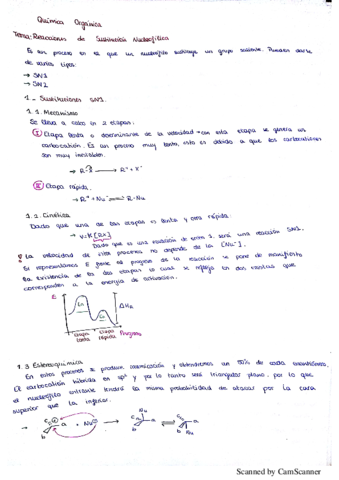 Química Orgánica
Tema: Reacciones de Sustitución Nucleofílica
Es un proceso en el que un nucleófilo sustituye un grupo saliente. Pueden darse
de varios tipos:
→ SN1
→ SN2
1.- Sustituciones SN1.
1.1. Mecanismo
Se lleva a cabo en 2 etapas:
I Etapa lenta o determinante de la velocidad → en esta etapa se genera un
carbocatión. Es un proceso muy lento, esto es debido a que los carbocationes
son muy inestables.
→ R-X → R⁺ + X⁻
II Etapa rápida.
→ R⁺ + Nu⁻ → R-Nu
1.2. Cinética
Dado que una de las etapas es lenta y otra rápida.
→ v=K[RX]
Dado que es una reacción de orden 1, será una reacción SN1.
La velocidad de este proceso no depende de la [Nu⁻].
Si representamos E frente al progreso de la reacción se pone de manifiesto
la existencia de las dos etapas lo cual se refleja en dos crestas que
corresponden a la energía de activación.
E
Ea
Ea
ΔHR
etapa lenta
etapa rápida
Progreso
1.3 Estereoquímica
En estos procesos se produce racemización y obtendremos un 50% de cada enantiómero.
El carbocatión híbrida en sp² y por lo tanto será triangular plano, por lo que
el nucleófilo entrante tendrá la misma probabilidad de atacar por la cara
superior que la inferior.
→ c b a + Nu⁻ → Nu c b a
Nu
Scanned by CamScanner